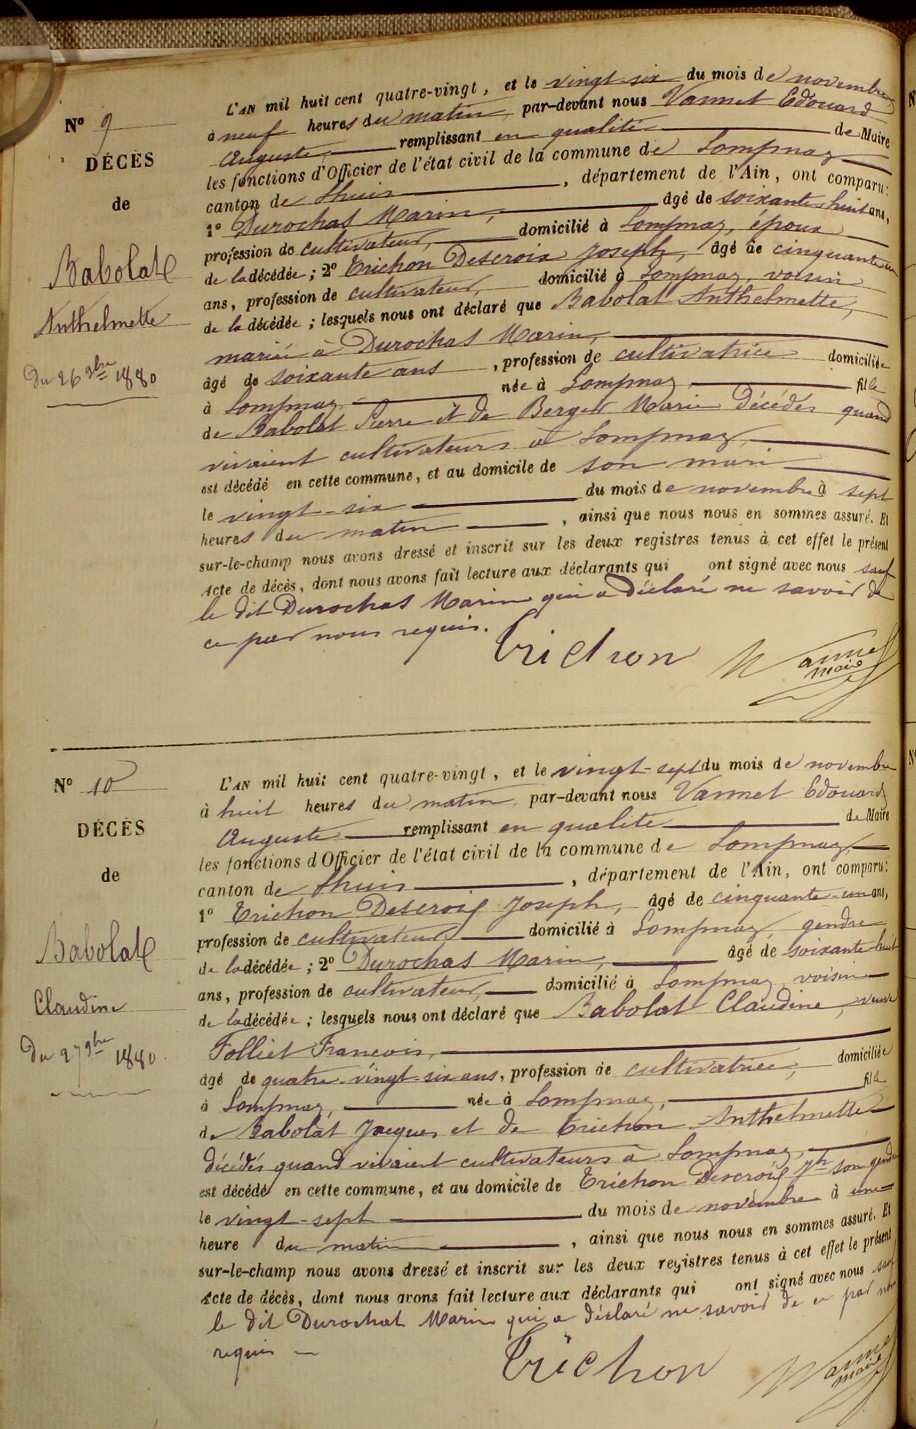 N° 9
DÉCÈS
de
Babolat
Anthelmette
Du 26 9bre 1880
L'AN mil huit cent quatre-vingt, et le vingt-six du mois de novembre
à neuf heures du matin par-devant nous Vannet Edouard
Auguste, remplissant en qualité de Maire
les fonctions d'Officier de l'état civil de la commune de Lompnaz
canton de Lhuis, département de l'Ain, ont comparu:
1° Durochat Marin, âgé de soixante-huit ans,
profession de cultivateur, domicilié à Lompnaz, époux
de la décédée; 2° Trichon Descroix Joseph, âgé de cinquante un
ans, profession de cultivateur, domicilié à Lompnaz, voisin
de la décédée; lesquels nous ont déclaré que Babolat Anthelmette,
mariée à Durochat Marin,
âgé de soixante ans, profession de cultivatrice domiciliée
à Lompnaz, née à Lompnaz fille
de Babolat Pierre et de Berger Marie décédés quand
vivaient cultivateurs à Lompnaz,
est décédé en cette commune, et au domicile de son mari
le vingt-six du mois de novembre à sept
heures du matin, ainsi que nous nous en sommes assuré. Et
sur-le-champ nous avons dressé et inscrit sur les deux registres tenus à cet effet le présent
Acte de décès, dont nous avons fait lecture aux déclarants qui ont signé avec nous sauf
le dit Durochat Marin qui a déclaré ne savoir de
ce par nous requis.
Trichon
Vannet
maire
N° 10
DÉCÈS
de
Babolat
Claudine
Du 27 9bre 1880.
L'AN mil huit cent quatre-vingt, et le vingt-sept du mois de novembre
à huit heures du matin par-devant nous Vannet Edouard
Auguste remplissant en qualité de Maire
les fonctions d'Officier de l'état civil de la commune de Lompnaz
canton de Lhuis, département de l'Ain, ont comparu:
1° Trichon Descroix Joseph, âgé de cinquante-un ans,
profession de cultivateur domicilié à Lompnaz, gendre
de la décédée; 2° Durochat Marin, âgé de soixante huit
ans, profession de cultivateur, domicilié à Lompnaz voisin
de la décédée; lesquels nous ont déclaré que Babolat Claudine, veuve
Folliet François,
âgé de quatre-vingt-six ans, profession de cultivatrice, domiciliée
à Lompnaz, née à Lompnaz, fille
de Babolat Jacques et de Trichon Anthelmette
décédés quand vivaient cultivateurs à Lompnaz,
est décédé en cette commune, et au domicile de Trichon Descroix Jh son gendre
le vingt-sept du mois de novembre à une
heure du matin, ainsi que nous nous en sommes assuré. Et
sur-le-champ nous avons dressé et inscrit sur les deux registres tenus à cet effet le présent
Acte de décès, dont nous avons fait lecture aux déclarants qui ont signé avec nous sauf
le dit Durochat Marin qui a déclaré ne savoir de ce par nous
requis
Trichon
Vannet
maire